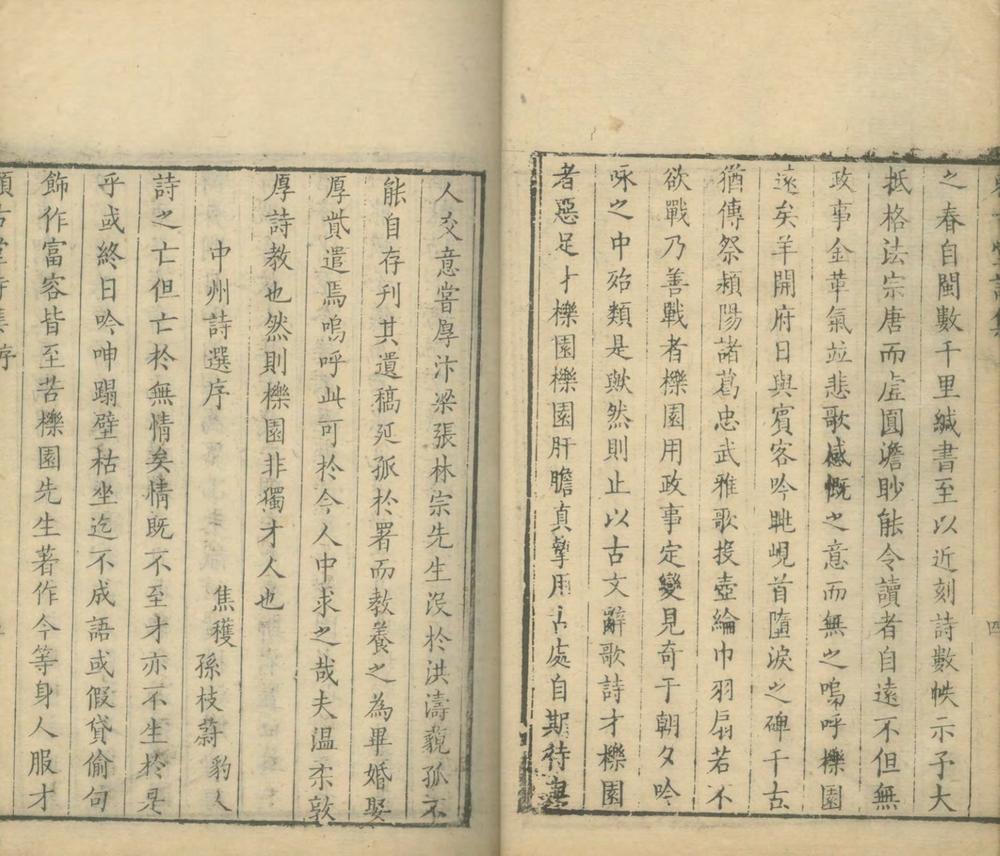 之春自閩數千里緘書至以近刻詩數帙示予大
抵格法宗唐而虛圓澹眇能令讀者自遠不但無
政事金革氣並悲歌感慨之意而無之嗚呼櫟園
遠矣羊開府日與賓客吟眺峴首墮淚之碑千古
猶傳祭潁陽諸葛忠武雅歌投壺綸巾羽扇若不
欲戰乃善戰者櫟園用政事定變見奇于朝夕吟
咏之中殆類是歟然則止以古文辭歌詩才櫟園
者惡足才櫟園櫟園肝膽真摯用古處自期待海
人爻意嘗厚汴梁張林宗先生沒於洪濤藐孤不
能自存刊其遺稿延孤於署而教養之為畢婚娶
厚貲遣焉嗚呼此可於今人中求之哉夫温柔敦
厚詩教也然則櫟園非獨才人也
中州詩選序
焦穫 孫枝蔚 豹人
詩之亡但亡於無情矣情既不至才亦不生於是
乎或終日吟呻蹋壁枯坐迄不成語或假貸偷句
飾作富容皆至苦櫟園先生著作今等身人服才